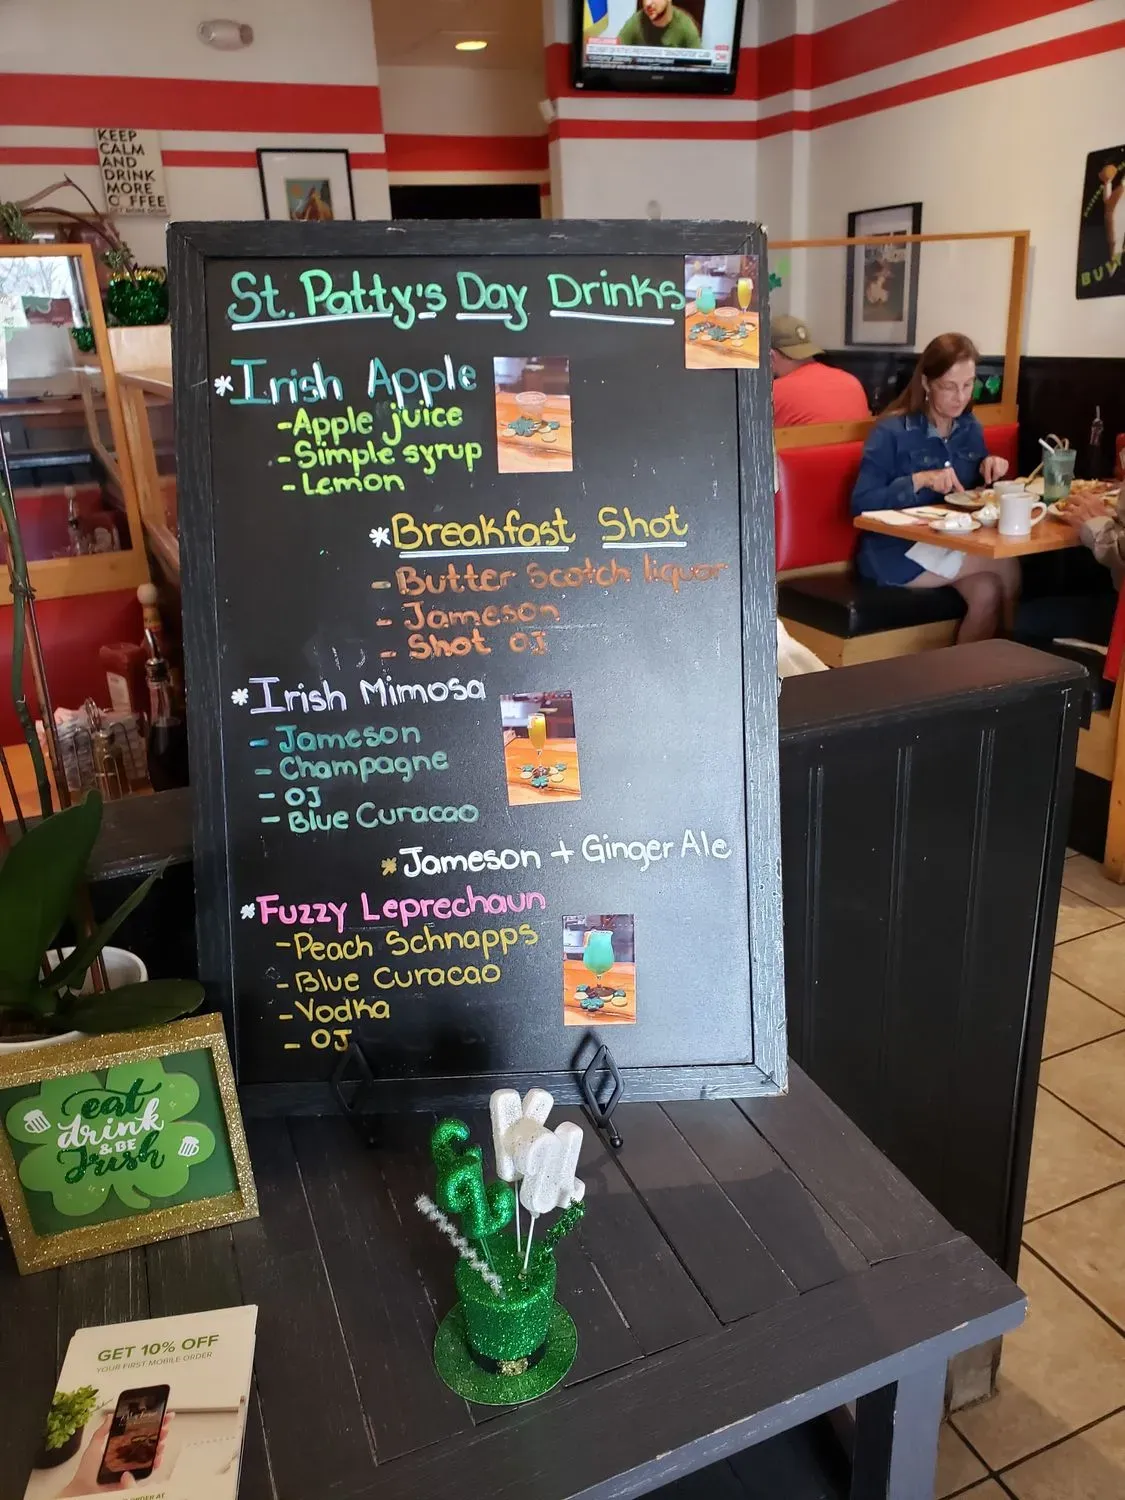 KEEP
CALM
AND
DRINK
MORE
COFFEE
CNN
St. Patty's Day Drinks
*Irish Apple
-Apple juice
-Simple syrup
-Lemon
*Breakfast Shot
-Butter Scotch liquor
-Jameson
-Shot OJ
*Irish Mimosa
-Jameson
-Champagne
-OJ
-Blue Curacao
*Jameson + Ginger Ale
*Fuzzy Leprechaun
-Peach Schnapps
-Blue Curacao
-Vodka
-OJ
eat
drink
& BE
Irish
GET 10% OFF
YOUR FIRST MOBILE ORDER